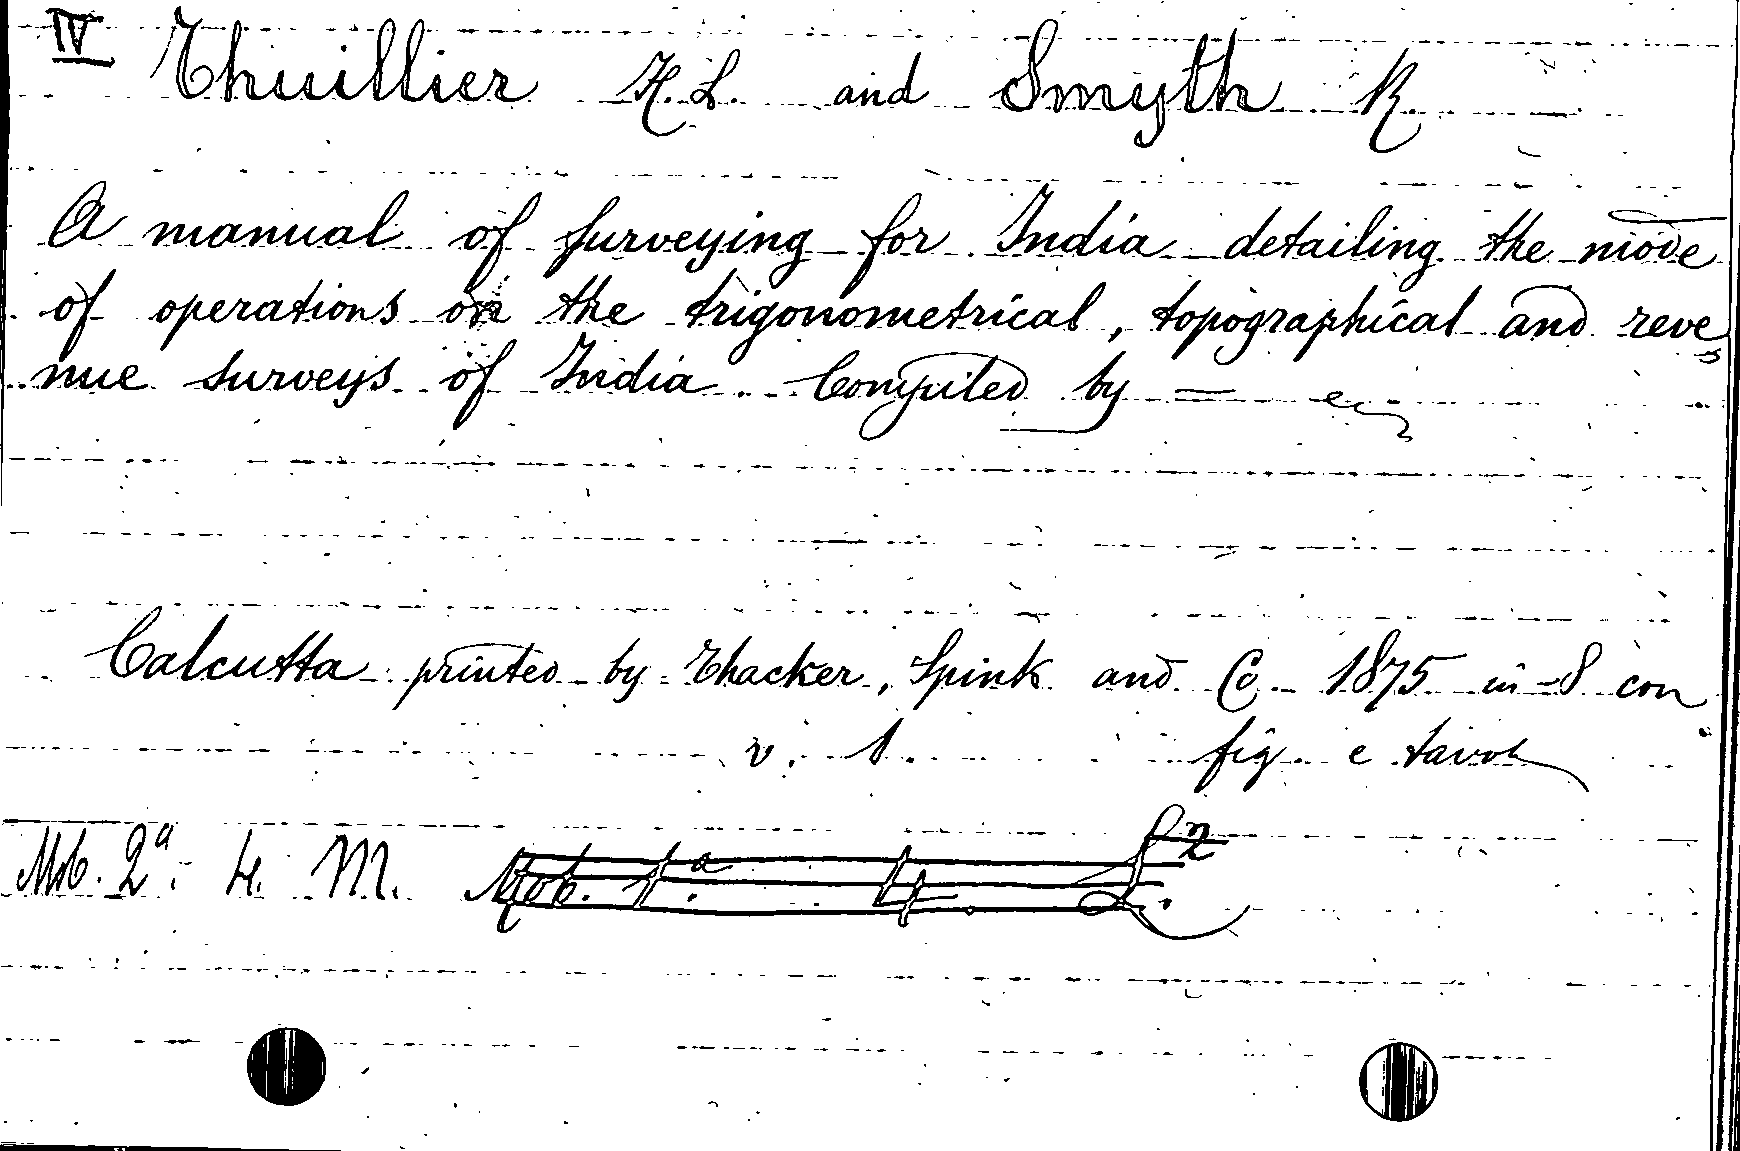 IV Thuillier H. L. and Smyth R.
A manual of surveying for India detailing the mode
of operations on the trigonometrical, topographical and reve
nue surveys of India. Compiled by —
Calcutta printed by Thacker, Spink and Co. 1875 in-8 con
v. 1. fig. e tavole
Mob. 2ª. 4. M. Mob. 1.ª 4. L.²